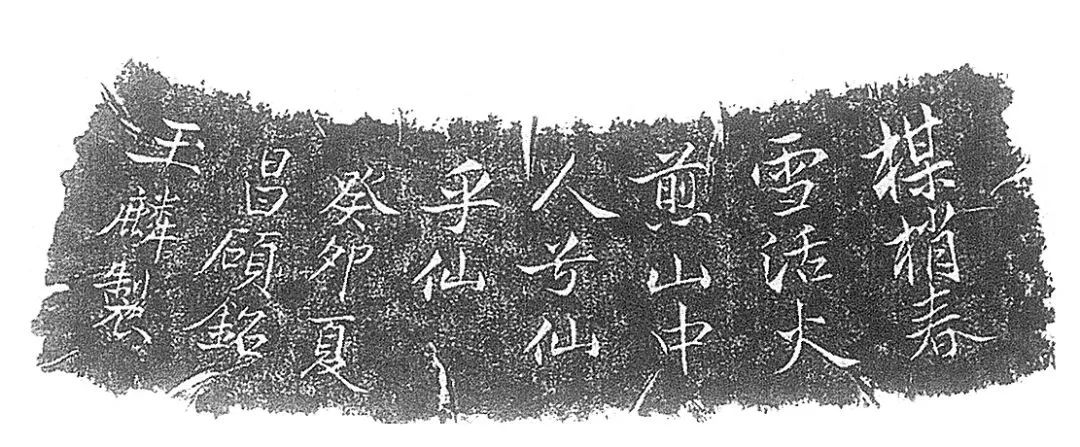 楳梢春
雪活火
煎山中
人兮仙
乎仙
癸卯夏
昌碩銘
玉麟製